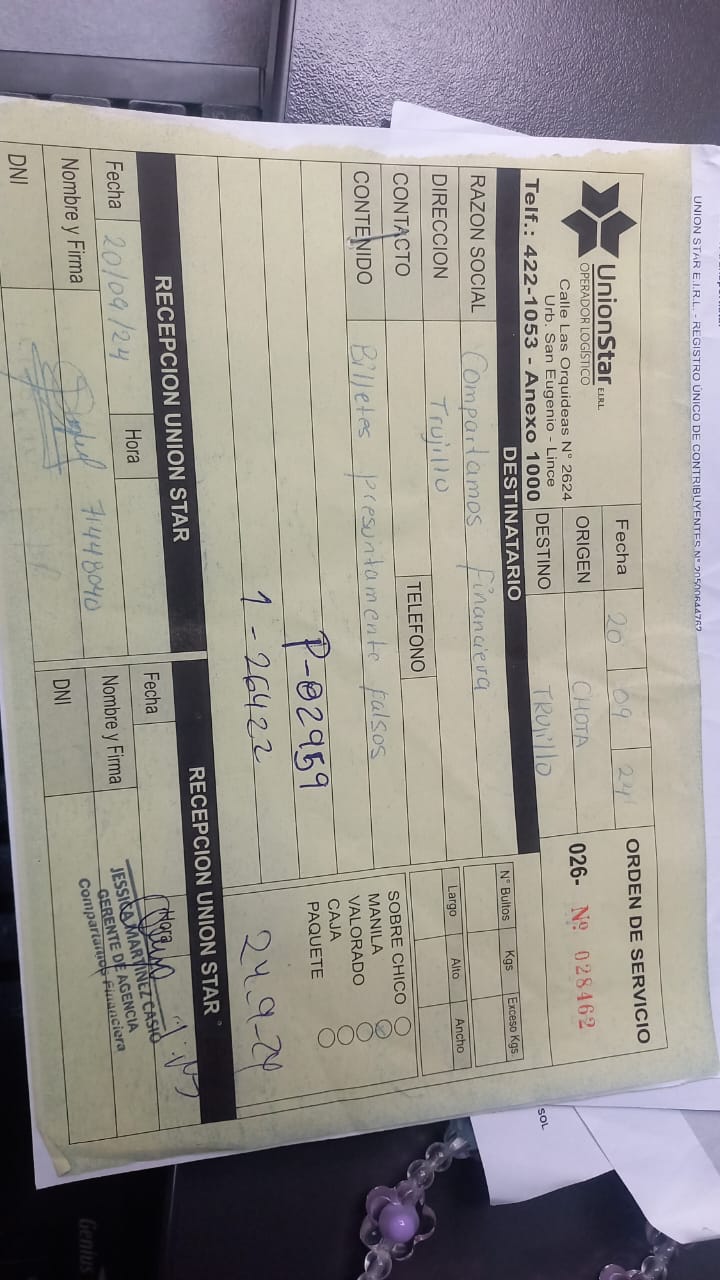 UNION STAR E.I.R.L. - REGISTRO ÚNICO DE CONTRIBUYENTES N° 20500644762
UnionStar E.I.R.L.
OPERADOR LOGÍSTICO
Calle Las Orquideas N° 2624
Urb. San Eugenio - Lince
Telf.: 422-1053 - Anexo 1000
Fecha 20 09 24
ORIGEN CHOTA
DESTINO TRUJILLO
ORDEN DE SERVICIO
026- Nº 028462
DESTINATARIO
RAZON SOCIAL Compartamos Financiera
DIRECCION Trujillo
CONTACTO TELEFONO
CONTENIDO Billetes presuntamente falsos
P-02959
1-26422
N° Bultos Kgs Exceso Kgs.
Largo Alto Ancho
SOBRE CHICO
MANILA
VALORADO
CAJA
PAQUETE
24-9-24
RECEPCION UNION STAR
Fecha 20/09/24 Hora
Nombre y Firma 71448040
DNI
RECEPCION UNION STAR
Fecha Hora
Nombre y Firma
DNI
JESSICA MARTINEZ CASIO
GERENTE DE AGENCIA
Compartamos Financiera
SOL
Genius